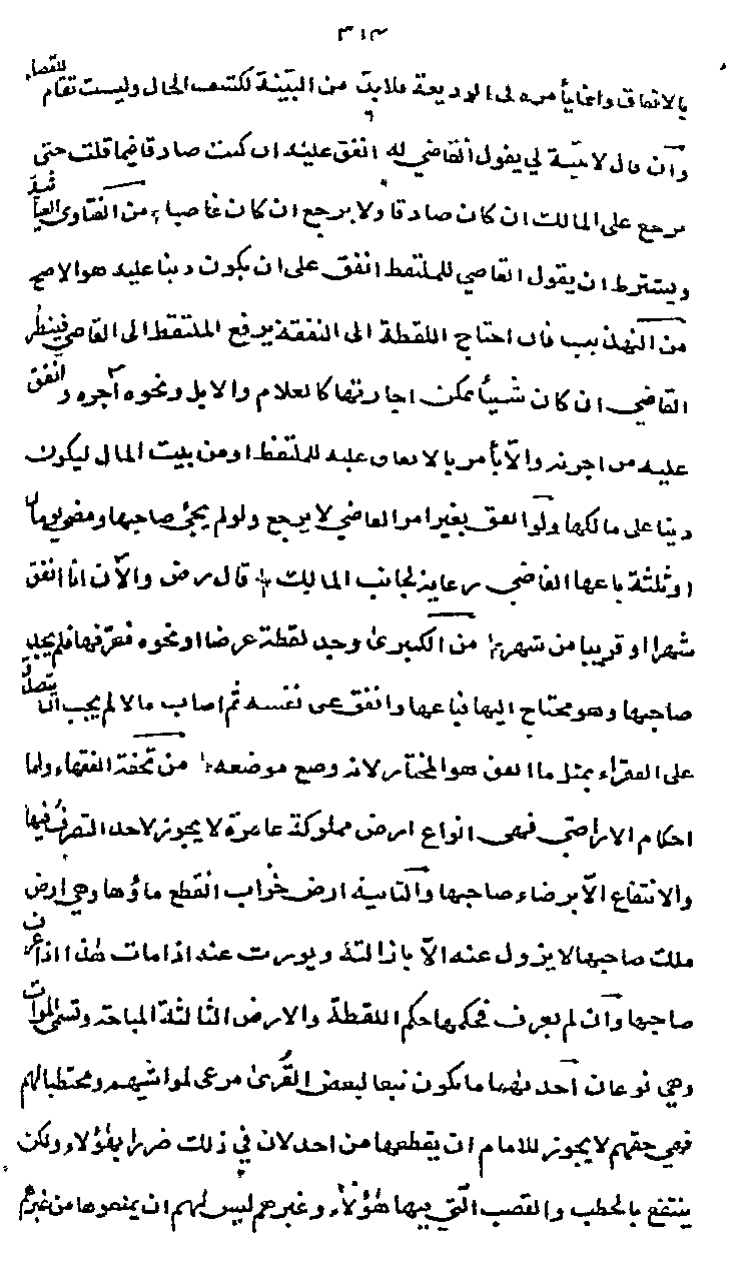 ٣١٣
بالانفاق وانما يأمره في الوديعة فلابد من البينة لكشف الحال وليست تقام للقضاء
وان قال لا بينة لي يقول القاضي له انفق عليه ان كنت صادقا فيما قلت حتى
يرجع على المالك ان كان صادقا ولا يرجع ان كان غاصبا من الفتاوى الغياثية
ويشترط ان يقول القاضي للملتقط انفق على ان يكون دينا عليه هو الاصح
من التهذيب فان احتاج اللقطة الى النفقة يرفع الملتقط الى القاضي فينظر
القاضي ان كان شيأ يمكن اجارتها كالغلام والابل ونحوه آجره وانفق
عليه من اجرته والا يأمر بالانفاق عليه للملتقط او من بيت المال ليكون
دينا على مالكها ولو انفق بغير امر القاضي لا يرجع ولو لم يجئ صاحبها ومضى يومان
او ثلثة باعها القاضي رعاية لجانب المالك قال رض والآن انا انفق
شهرا او قريبا من شهر من الكبرى وجد لقطة عرضا او نحوه فعرفها فلم يجد
صاحبها وهو محتاج اليها فباعها وانفق على نفسه ثم اصاب مالا لم يجب ان يتصدق
على الفقراء بمثل ما انفق هو المختار لانه وضع موضعه من تحفة الفقهاء واما
احكام الاراضي فهي انواع ارض مملوكة عامرة لا يجوز لاحد التصرف فيها
والانتفاع الا برضاء صاحبها والثانية ارض خراب انقطع ماؤها وهي ارض
ملك صاحبها لا يزول عنه الا بازالته ويورث عنه اذا مات هذا اذا عرف
صاحبها وان لم يعرف فحكمها حكم اللقطة والارض الثالثة المباحة وتسمى الموات
وهي نوعان احدهما ما يكون تبعا لبعض القرى مرعى لمواشيهم ومحتطبا لهم
فهي حقهم لا يجوز للامام ان يقطعها من احد لان في ذلك ضررا بهؤلاء ولكن
ينتفع بالحطب والقصب التي فيها هؤلاء وغيرهم ليس لهم ان يمنعوها من غيرهم